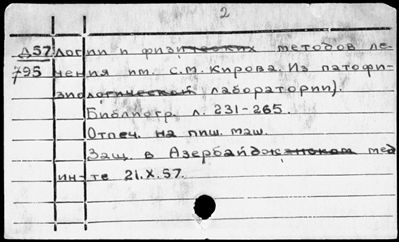 2
Д57 логии и физических методов ле-
795 чения им. С.М. Кирова. Из патофи-
зиологической лаборатории).
Библиогр. л. 231-265.
Отпеч. на пиш. маш.
Защ. в Азербайджанском мед
ин-те 21.X.57.